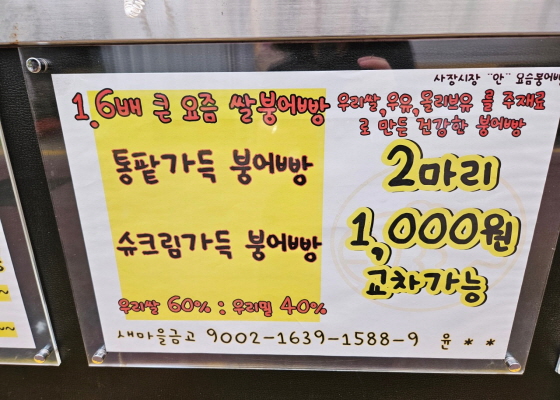 사장시장 "안" 요즘붕어빵
1.6배 큰 요즘 쌀붕어빵
우리쌀,우유,올리브유 를 주재료
로 만든 건강한 붕어빵
통팥가득 붕어빵
2마리
슈크림가득 붕어빵
1,000원
교차가능
우리쌀 60% : 우리밀 40%
새마을금고 9002-1639-1588-9 윤 * *